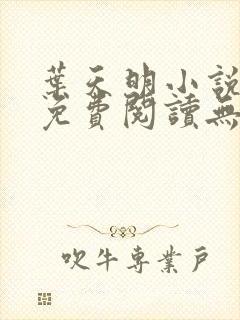 葉天明小說
免費閱讀無
吹牛專業戶